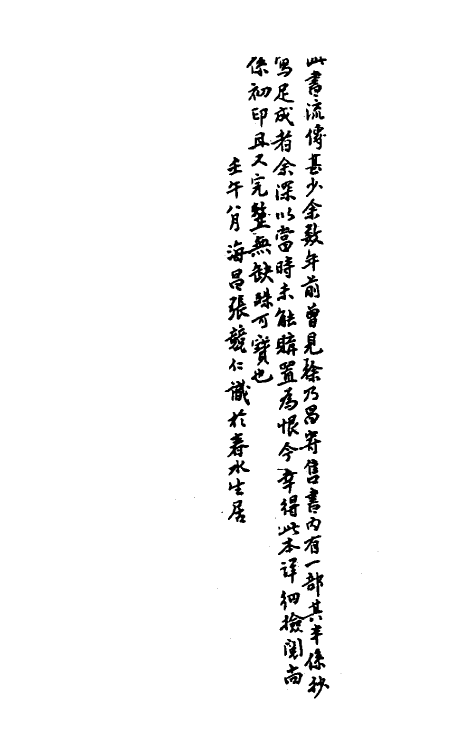 此書流傳甚少余數年前曾見徐乃昌寄售書內有一部其半係抄
寫足成者余深以當時未能購置為恨今幸得此本詳細撿閱尚
係初印且又完整無缺殊可寶也
壬午八月海昌張競仁識於春水生居